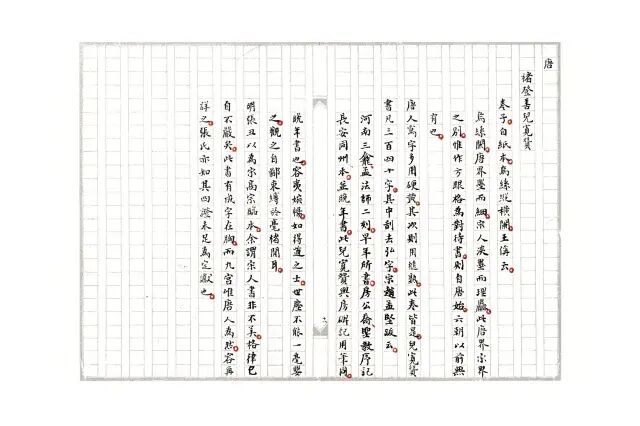 唐
褚登善兒寬贊
卷子白紙本烏絲縱橫闌王偁云
烏絲闌唐界墨而細宋人淡墨而理麤此唐界宋界
之別惟作方眼格為對待書則自唐始六朝以前無
有也
唐人寫字多用硬黃其次則用槌熟此卷皆是兒寬贊
書凡三百四十字其中刮去弘字宗趙孟堅跋云
河南三龕孟法師二刻早年所書房公喬聖教序記
長安同州本並晚年書此兒寬贊與房碑記用筆同
晚年書也容夷婉暢如得道之士世塵不能一毫嬰
之觀之自鄙束縛於毫楮間耳
明張丑以為宋高宗臨本余謂宋人書非不美格律已
自不嚴矣此書有痕字在胸而九宮唯唐人為然容再
詳之張氏亦知其四證未足為定讞也